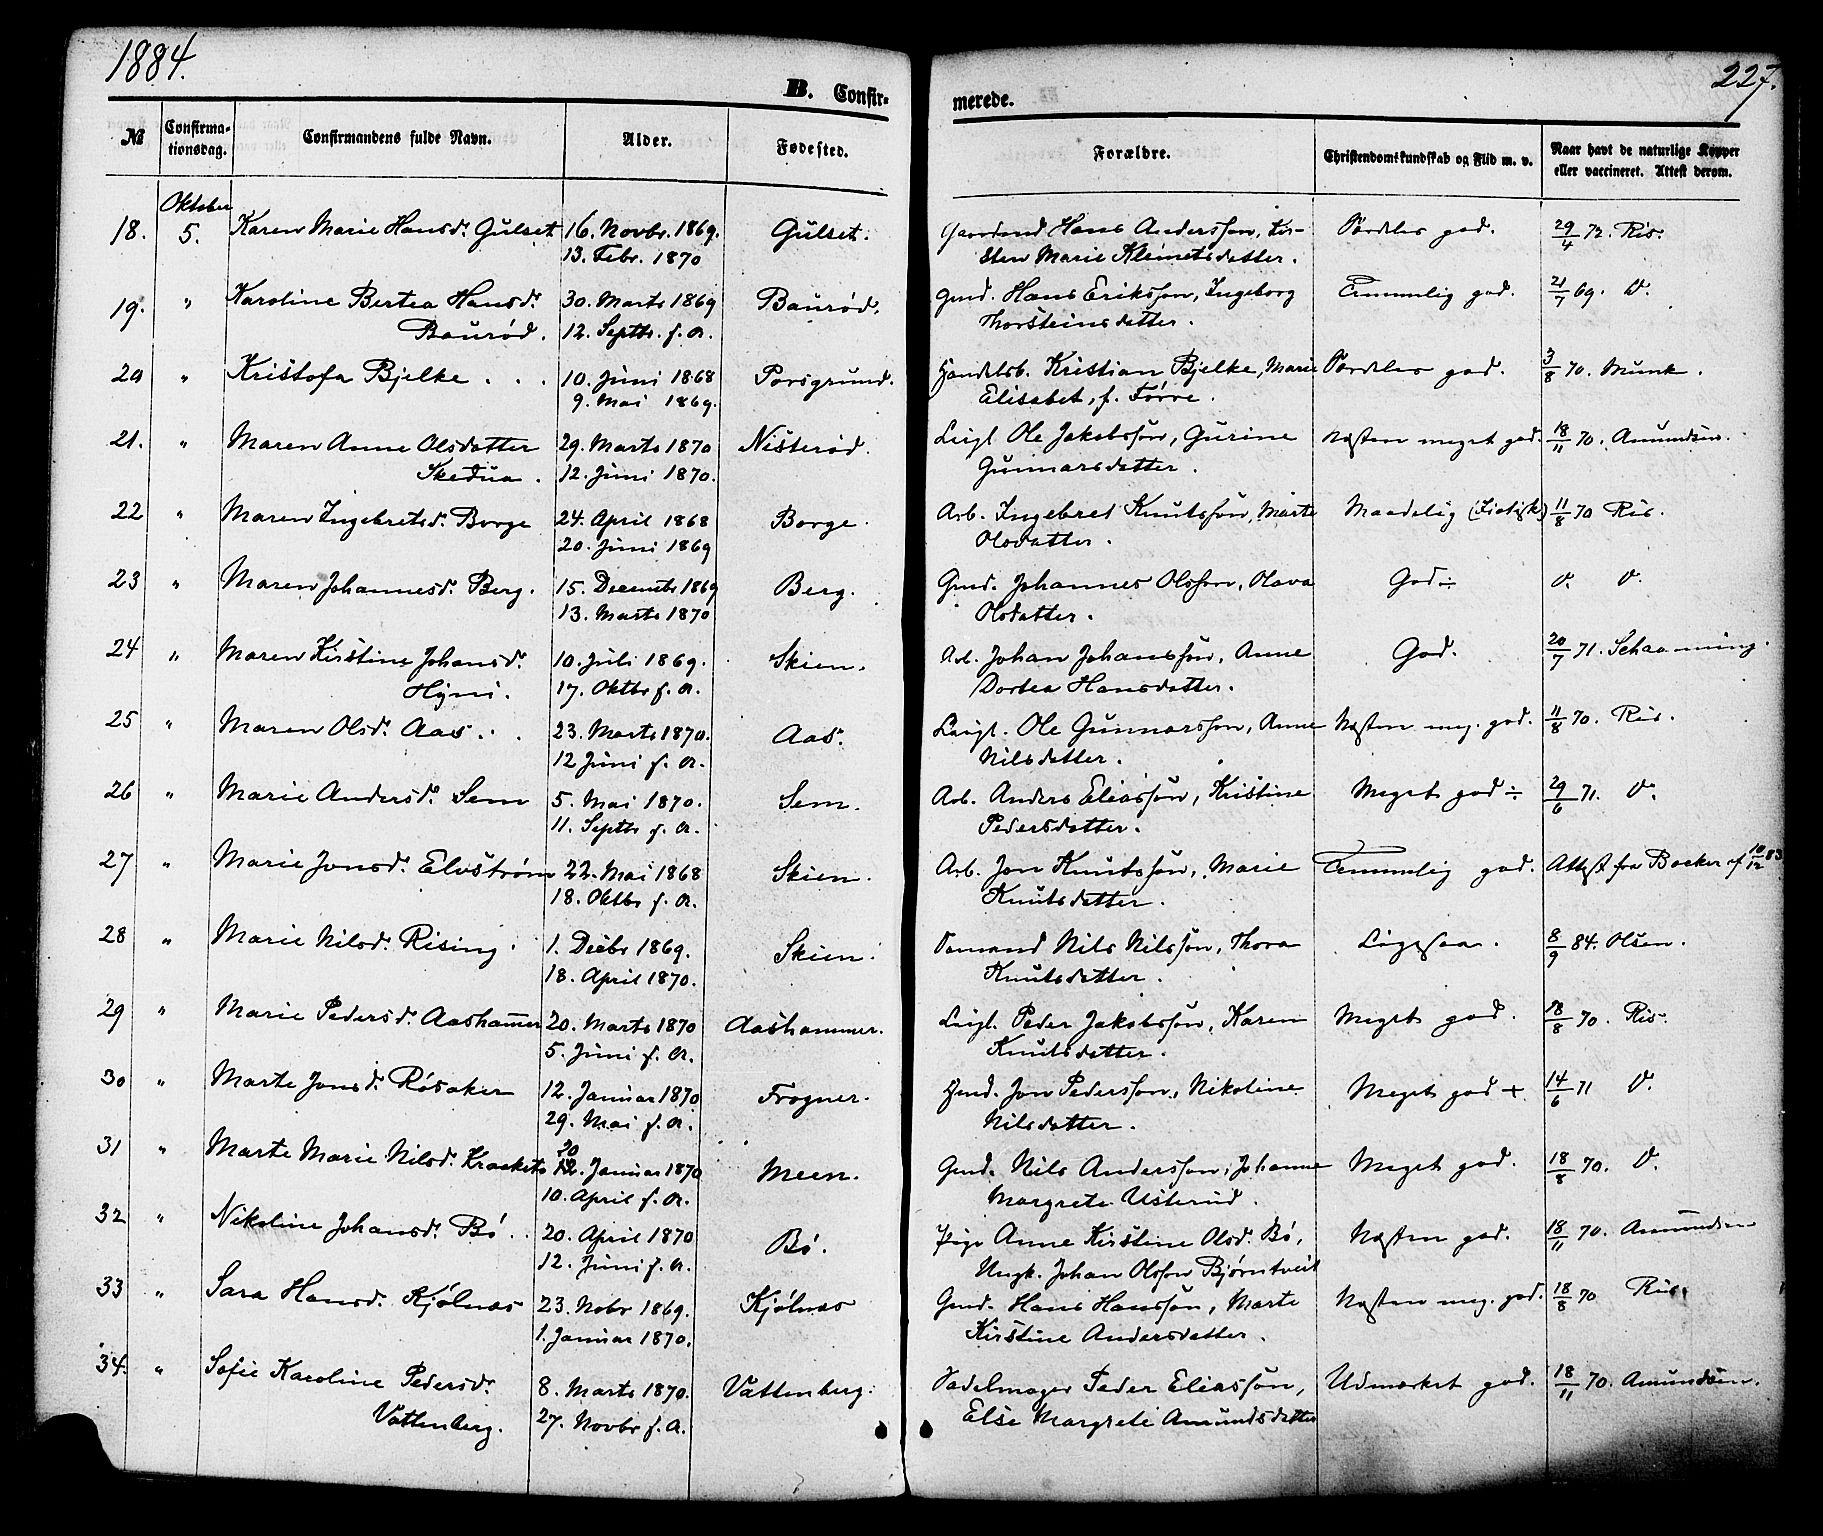 1884.
227.
B. Confir-
merede.
№
Confirma-
tionsdag.
Confirmandens fulde Navn.
Alder.
Fødested.
Forældre.
Christendomskundskab og Flid m. v.
Naar havt de naturlige Kopper
eller vaccineret. Attest derom.
Oktober
18. 5. Karen Marie Hansd. Gulset 16. Novbr. 1869. Gulset. Gaardmd Hans Anderssøn, Kir- Særdeles god. 29/4 72. Riis.
13. Febr. 1870 sten Marie Klemetsdatter.
19. " Karoline Bertea Hansd. 30. Marts 1869 Baurød. Gmd. Hans Erikssøn, Ingeborg Temmelig god. 21/7 69. D.
Baurød. 12. Septbr. s. A. Thorsteinsdatter.
20 " Kristofa Bjelke . . . 10. Juni 1868 Porsgrund. Handelsb. Kristian Bjelke, Marie Særdeles god. 3/8 70. Munk.
9. Mai 1869. Elisabet, f. Førre.
21. " Maren Anne Olsdatter 29. Marts 1870 Nisterød. Leigl. Ole Jakobssøn, Gurine Næsten meget god. 18/11 70. Amundsen.
Skedua. 12. Juni 1870. Gunnarsdatter.
22 " Maren Ingebretsd. Borge 24. April 1868 Borge. Arb. Ingebret Knutssøn, Marte Maadelig 11/8 70 Riis.
20. Juni 1869 Olsdatter.
23 " Maren Johannesd. Berg. 15. Decembr 1869 Berg. Gmd. Johannes Olssøn, Olava God ÷ D. D.
13. Marts 1870 Olsdatter.
24 " Maren Kirstine Johansd. 10. Juli 1869. Skien. Arb. Johan Johanssøn, Anne God. 20/7 71. Schaanning.
Hyni. 17. Oktbr s. A. Dortea Hansdatter.
25 " Maren Olsd. Aas . . 23. Marts 1870. Aas. Leigl. Ole Gunnarssøn, Anne Næsten meg. god. 11/8 70. Riis.
12 Juni s. A. Nilsdatter.
26 " Marie Andersd. Sem 5. Mai 1870. Sem. Arb. Anders Eliassøn, Kristine Meget god ÷ 29/6 71. D.
11. Septbr s. A. Pedersdatter.
27 " Marie Jonsd. Elvstrøm 22. Mai 1868 Skien. Arb. Jon Knutssøn, Marie Temmelig god. Attest fra Backer af 10/12 83
18. Oktbr s. A. Knutsdatter.
28 " Marie Nilsd. Rising. 1. Decbr 1869. Skien. Sømand Nils Nilssøn, Thora Ligesaa. 8/9 84. Olsen.
18. April 1870. Knutsdatter.
29 " Marie Pedersd. Aashammer 20. Marts 1870 Aashammer. Leigl. Peder Jakobssøn, Karen Meget god. 18/8 70. Riis.
5. Juni s. A. Knutsdatter.
30 " Marte Jonsd. Røsaker 12. Januar 1870 Frogner. Gmd. Jon Pederssøn, Nikoline Meget god + 14/6 71 D.
29. Mai s. A. Nilsdatter.
31 " Marte Marie Nilsd. 20 Januar 1870 Meen. Gmd. Nils Anderssøn, Johanne Meget god. 18/8 70. D.
10. April s. A. Margrete Usterud.
32 " Nikoline Johansd. Bø . . 20. April 1870 Bø. Pige Anne Kirstine Olsd. Bø, Næsten god. 18/11 70. Amundsen
12. Juni s. A. Ungk. Johan Olssøn Bjørntveit
33 " Sara Hansd. Kjølnæs 23. Nobr 1869. Kjølnæs Gmd. Hans Hanssøn, Marte Næsten meg. god. 18/8 70 Riis.
1. Januar 1870. Kirstine Andersdatter.
34. " Sofie Karoline Pedersd. 8. Marts 1870. Vattenberg. Sadelmager Peder Eliassøn, Udmærket god. 18/11 70. Amundsen.
Vattenberg. 27. Novbr s. A. Else Margrete Amundsdatter